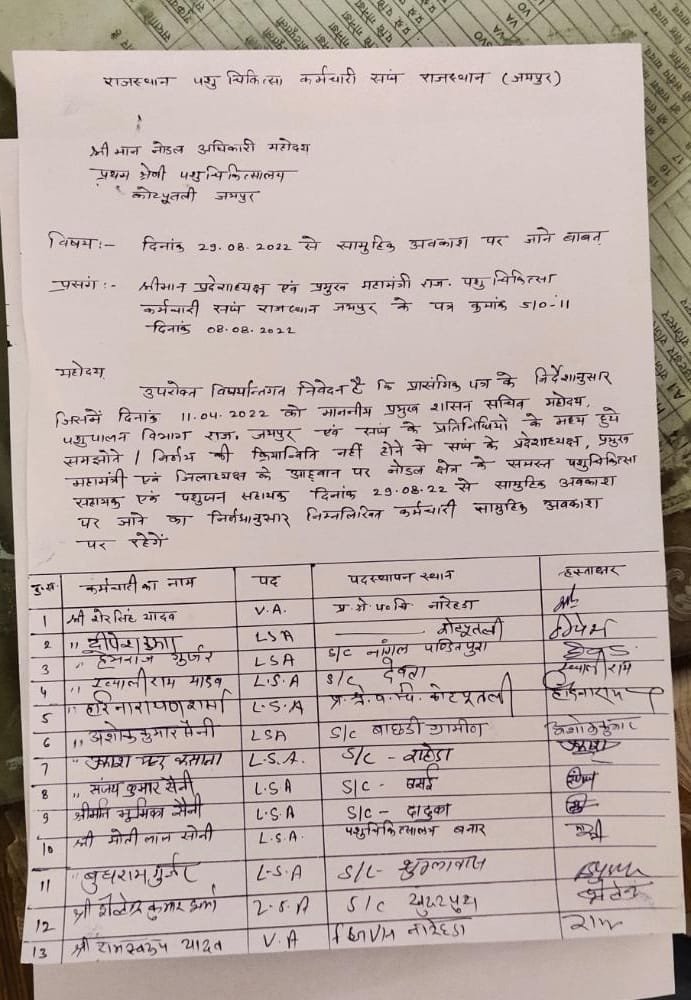 राजस्थान पशु चिकित्सा कर्मचारी संघ राजस्थान (जयपुर)
श्रीमान नोडल अधिकारी महोदय
प्रथम श्रेणी पशुचिकित्सालय
कोटपूतली जयपुर
विषय:- दिनांक 29.08.2022 से सामुहिक अवकाश पर जाने बाबत्
प्रसंग:- श्रीमान प्रदेशाध्यक्ष एवं प्रमुख महामंत्री राज. पशु चिकित्सा
कर्मचारी संघ राजस्थान जयपुर के पत्र कुमांक 510-11
दिनांक 08.08.2022
महोदय
उपरोक्त विषयान्तगत निवेदन है कि प्रासंगिक पत्र के निर्देशानुसार
जिसमें दिनांक 11.04.2022 को माननीय प्रमुख शासन सचिव महोदय,
पशुपालन विभाग राज. जयपुर एवं संघ के प्रतिनिधियो के मध्य हुये
समझोते / निर्णय की कियान्विति नहीं होने से संघ के प्रदेशाध्यक्ष, प्रमुख
महामंत्री एवं जिलाध्यक्ष के आह्वान पर नोडल क्षेत्र के समस्त पशुचिकित्सा
सहायक एवं पशुधन सहायक दिनांक 29.08.22 से सामुहिक अवकाश
पर जाने का निर्णयानुसार निम्नलिखित कर्मचारी सामुहिक अवकाश
पर रहेगें
कु.सं. कर्मचारी का नाम पद पदस्थापन स्थान हस्ताक्षर
1 श्री शेरसिंह यादव V.A. प्र.श्रे.प०चि. नारेहडा
2 " LSA कोटपूतली
3 " हेमराज गुर्जर LSA S/C नांगल पण्डितपुरा
4 " ख्यालीराम यादव L.S.A S/C देवता ख्यालीराम
5 " हरिनारायण शर्मा L.S.A प्र.श्रे.प.चि. कोटपूतली हरिनारायण
6 " अशोक कुमार सैनी LSA S/C बाछडी ग्रामीण अशोक कुमार
7 " प्रकाश चन्द कसाना L.S.A. S/C -
8 " संजय कुमार सैनी L.S.A S/C - बसई
9 श्रीमति भुमिका सैनी L.S.A S/C - दादुका
10 श्री मोती लाल सोनी L.S.A. पशुचिकित्सालय बनार
11 " बुधराम गुर्जर L.S.A S/C-
12 श्री कुमार शर्मा L.S.A S/C
13 श्री रामस्वरूप यादव V.A नारेहडा राम